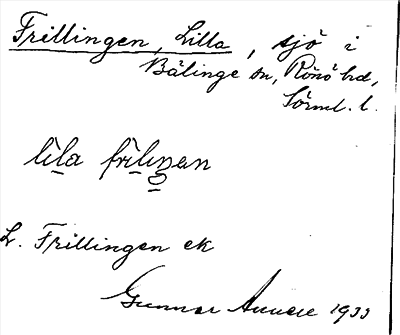 Frillingen, Lilla, sjö i
Bälinge sn, Rönö hd,
Sörml. l.
lila friliŋən
L. Frillingen ek
Gunnar 1933